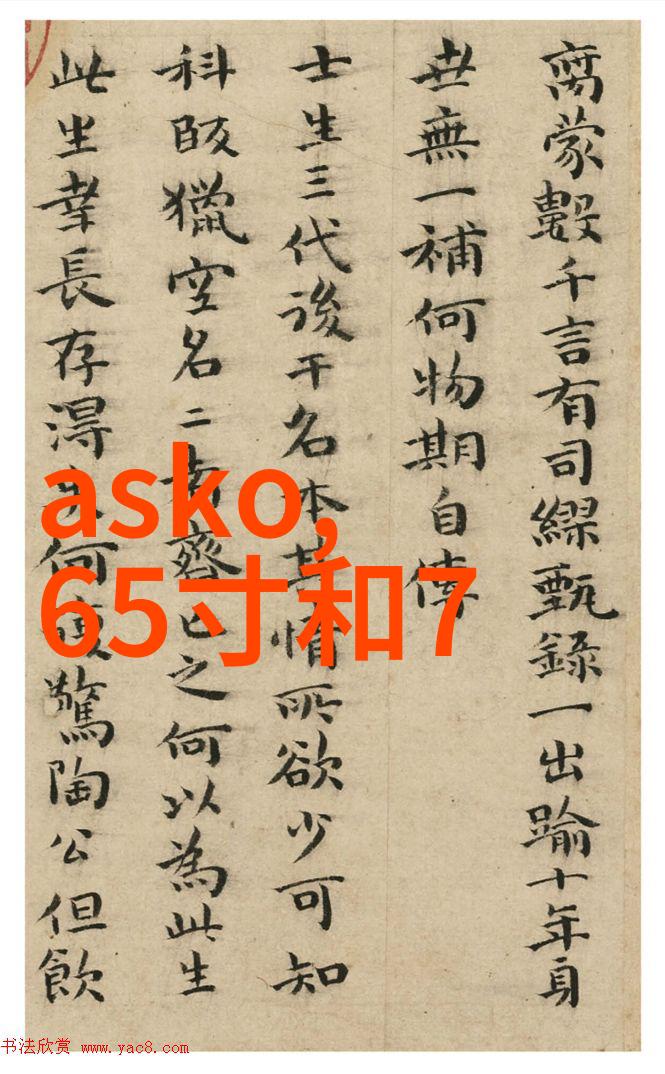 离蒙數千言有司繆甄録一出踰十年身
世無一補何物期自俾
士生三代後干名本甚情所欲少可知
科皈獵空名二者齊已之何以為此生
此生幸長存得失何 驚陶公但飲
asko,
65寸和7
书法欣赏 www.yac8.com